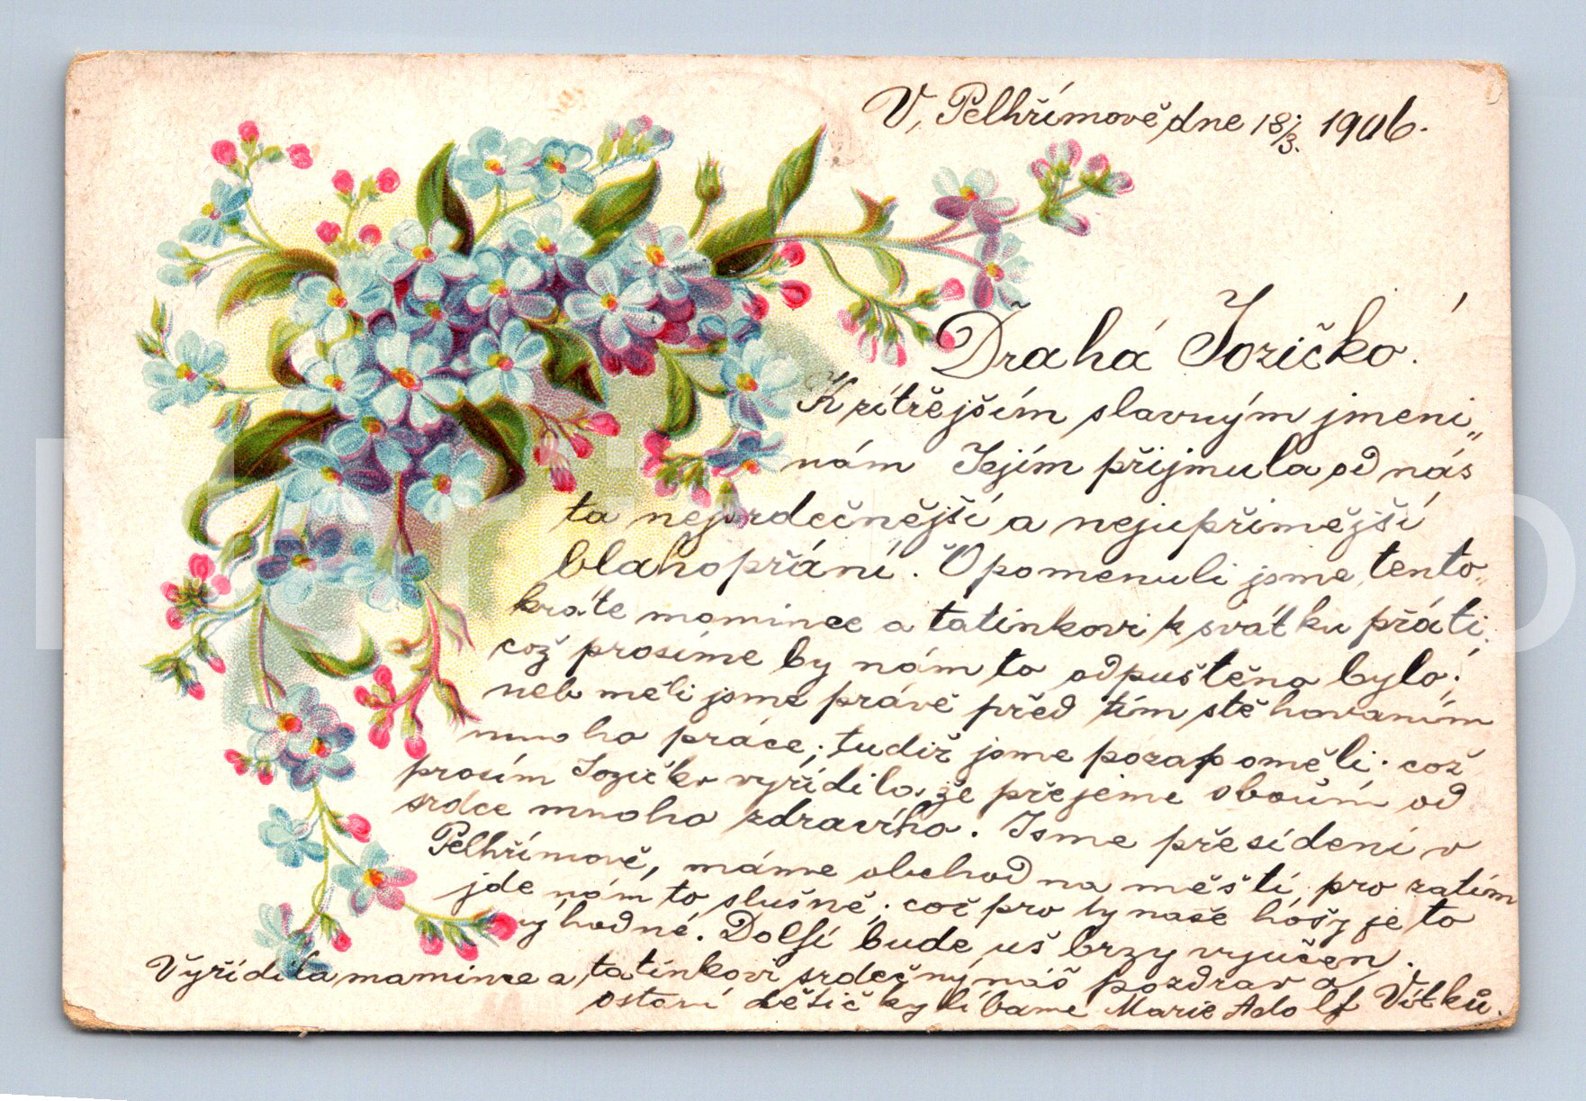 V, Pelhřimově dne 18/3. 1906.
Drahá Jozičko!
K zítřejším slavným jmeni„
nám Jejím přijmula od nás
ta nejsrdečnější a nejupřimější
blahopřání. Opomenuli jsme tento„
kráte mamince a tatínkovi k svátku přáti,
což prosíme by nám to odpuštěno bylo;
neb měli jsme právě před tím stěhovaním
mnoho práce; tudiž jsme pozapoměli. což
prosím Jozičko vyřídila, že přejeme oboum od
srdce mnoho zdravího. Jsme přesídleni v
Pelhřimově, máme obchod na městě, pro zatím
jde nám to slušně; což pro ty naše hóšy je to
výhodné. Dolfi bude uš brzy vyučen.
Vyřídila mamince a tatínkovi srdečný náš pozdrav a
ostaní děšičky líbame Marie Adolf Vítků.